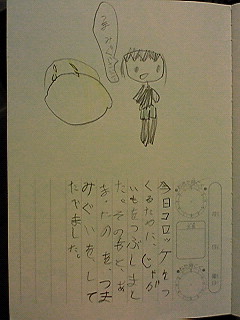 今日コロッケをつ
くるために、じゃが
いもをつぶしまし
た。そのあと、あ
まったのを、つま
みぐいを、して
たべました。